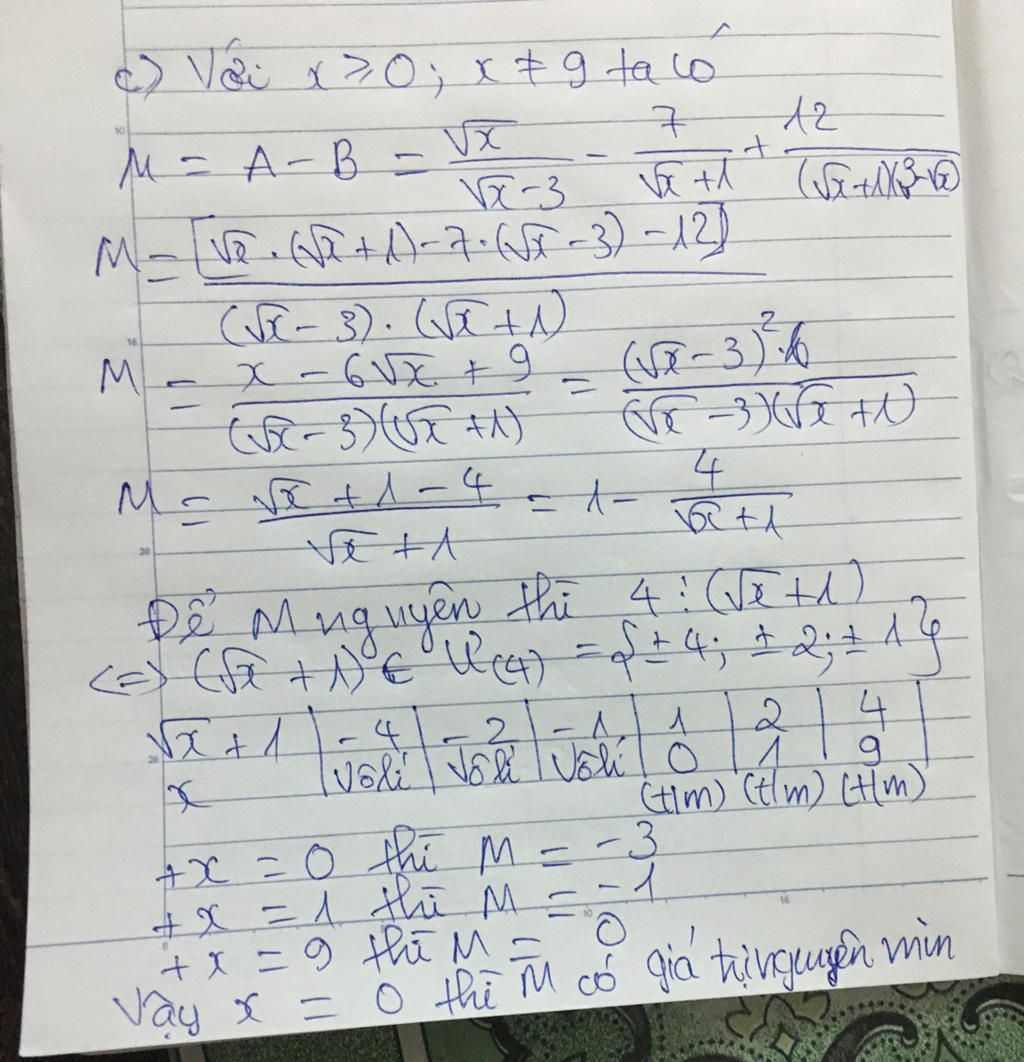 c) Với x ≥ 0; x ≠ 9 ta có
M = A - B = √x/(√x - 3) - 7/(√x + 1) + 12/((√x+1)(3-√x))
M = [√x . (√x + 1) - 7 . (√x - 3) - 12] / ((√x - 3) . (√x + 1))
M = (x - 6√x + 9)/((√x - 3)(√x + 1)) = (√x - 3)²/((√x - 3)(√x + 1))
M = (√x + 1 - 4)/(√x + 1) = 1 - 4/(√x + 1)
Để M nguyên thì 4 ⋮ (√x + 1)
<=> (√x + 1) ∈ Ư(4) = {± 4; ± 2; ± 1}
√x + 1 | -4 | -2 | -1 | 1 | 2 | 4 |
x | Vô lí | Vô lí | Vô lí | 0 | 1 | 9 |
(t/m) (t/m) (t/m)
+ x = 0 thì M = -3
+ x = 1 thì M = -1
+ x = 9 thì M = 0
Vậy x = 0 thì M có giá trị nguyên min